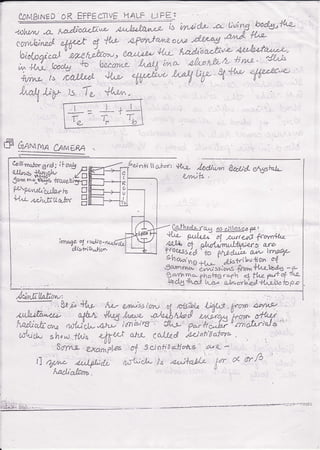 COMBINED OR EFFECTIVE HALF LIFE :
when a radioactive substance is inside a living body, the
combined effect of the spontaneous decay and the
biological excretion, causes the radioactive substance,
in the body to become half in a shorter time. This
time is called the effective half life. If the effective
half life is Te then,
1/Te = 1/Tr + 1/Tb
GAMMA CAMERA.
Collimator grid; it only
allows through
gamma rays traveling
perpendicular to
the scintillator
Scintillator: the sodium iodid crystals
emits.
image of radio-nuclide
distribution
Cathode ray oscilloscope:
the pulses of current from the
of photomultipliers are
processed to produce an image
showing the distribution of
gamma emissions from the body - a
gamma photograph of the part of the
body that has absorbed the isotope
Scintillation:
It is the re emission of visible light from some
substances after they have absorbed energy from other
radiations which are ionising. The particular materials
which show this effect are called scintillators.
Some examples of scintillations are -
1] zinc sulphide which is suitable for α or β
radiations.